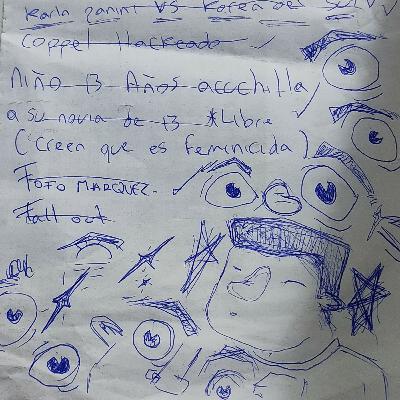 Karla panini VS Korea del SUR
Coppel Hackeado
Niño 13 Años acuchilla
a su novia de 13 *Libre
(Creen que es feminicida)
FOFO MARQUEZ.
Fall out.